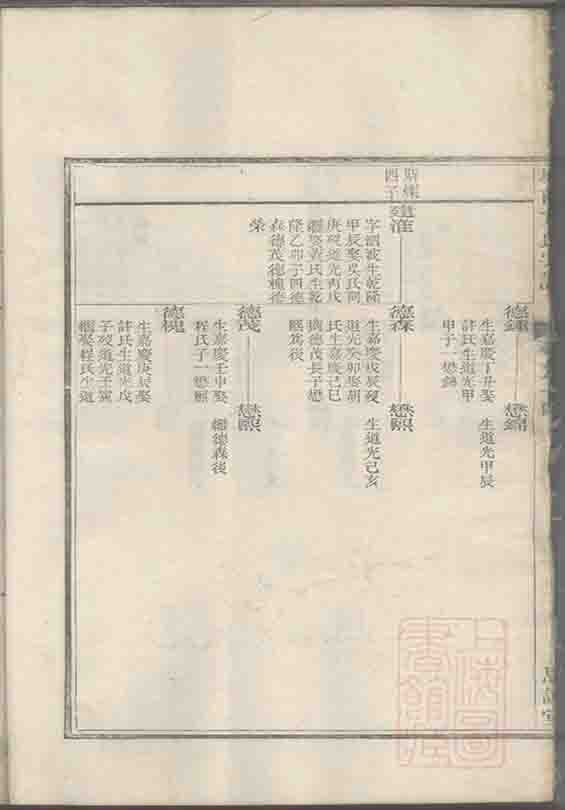 德鏽
生嘉慶丁丑娶
許氏生道光甲
甲子一懋錦
懋錦
生道光甲辰
四子
建淮
字泗波生乾隆
甲辰娶吳氏同
庚歿道光丙戌
繼娶黃氏生乾
隆乙卯子四德
森德茂德槐德
榮
德森
生嘉慶戊辰歿
道光癸卯娶胡
氏生嘉慶己巳
撫德茂長子懋
熙為後
懋熙
生道光己亥
德茂
生嘉慶壬申娶
程氏子一懋熙
懋熙
繼德森後
德槐
生嘉慶庚辰娶
許氏生道光戊
子歿道光壬寅
繼娶程氏生道
上海圖書館藏